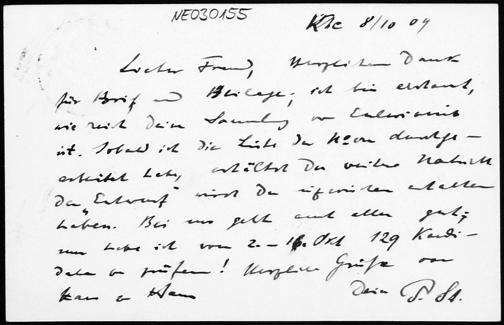 NE030155
Kle 8/10 09
Lieber Freund, Herzlichen Dank
für Brief und Beilage; ich bin erstaunt,
wie reich Deine Sammlung von Euleriana
ist. Sobald ich die Liste der durchge-
arbeitet habe, erhältst Du weitere Nachricht
Den "Entwurf" wirst Du inzwischen erhalten
haben. Bei uns geht auch alles gut;
nun habe ich vom 2.-16. Okt 129 Kandi-
daten zu prüfen! Herzliche Grüße von
Haus zu Haus
Dein P. St.